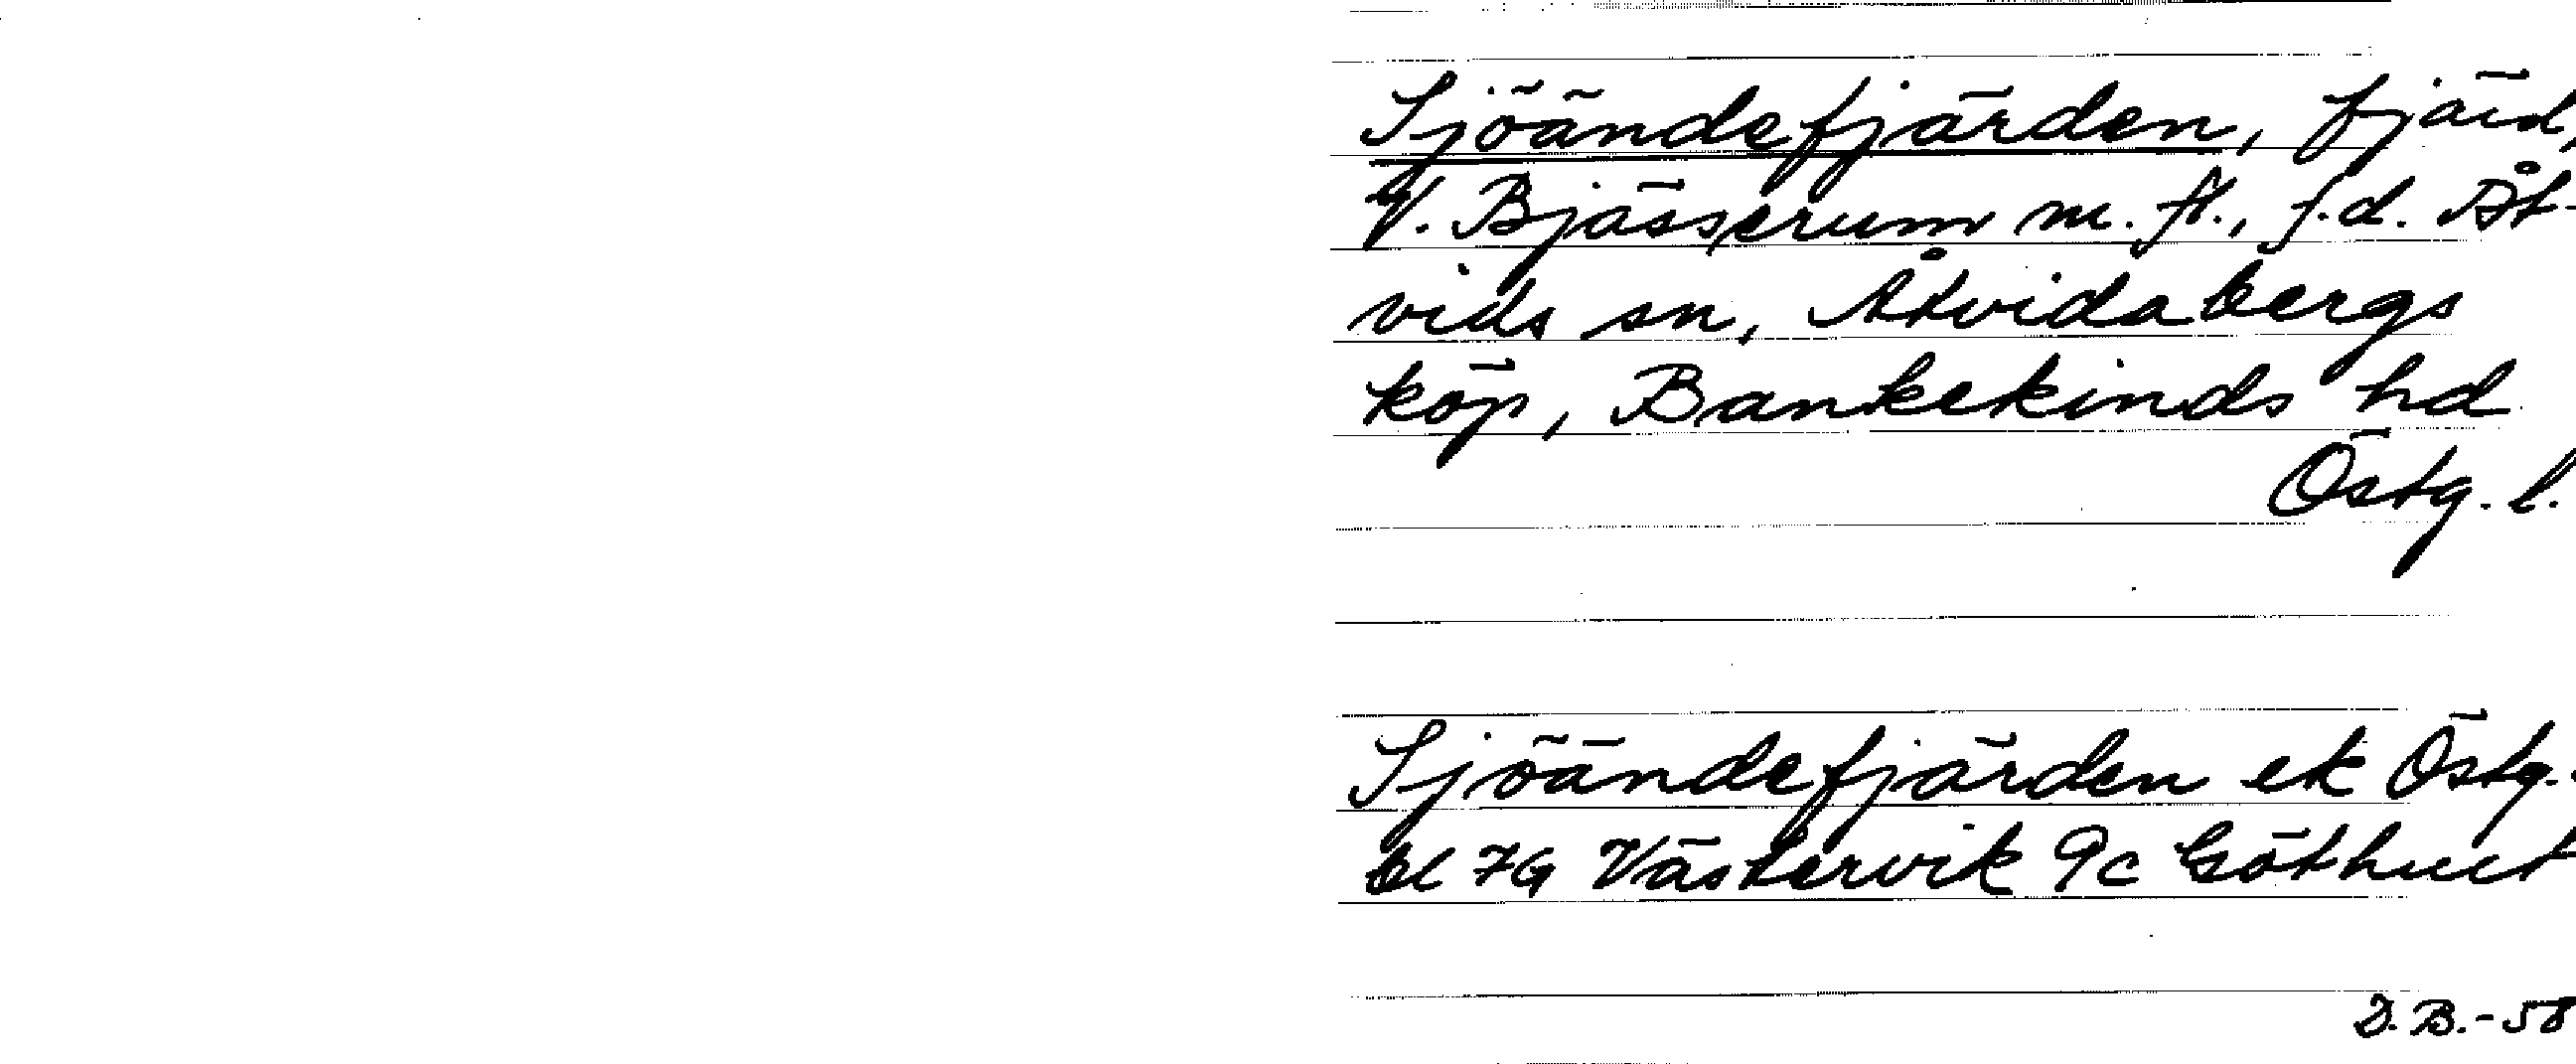 Sjöändefjärden, fjärd,
V. Bjässerum m. fl., f.d. Åt-
vids sn, Åtvidabergs
köp, Bankekinds hd
Östg. l.
Sjöändefjärden ek Östg.
bl 7G Västervik 9c Göthult
D.B.-58